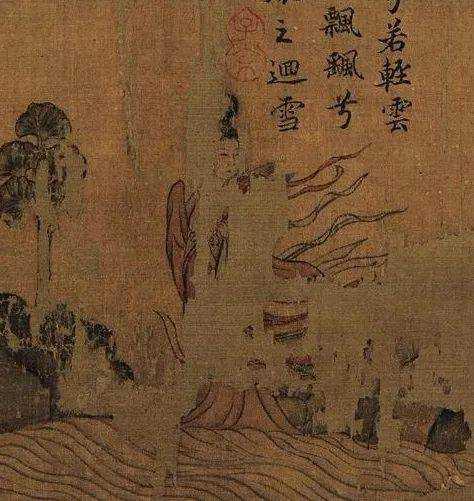 若輕雲
飄颻兮
之迴雪